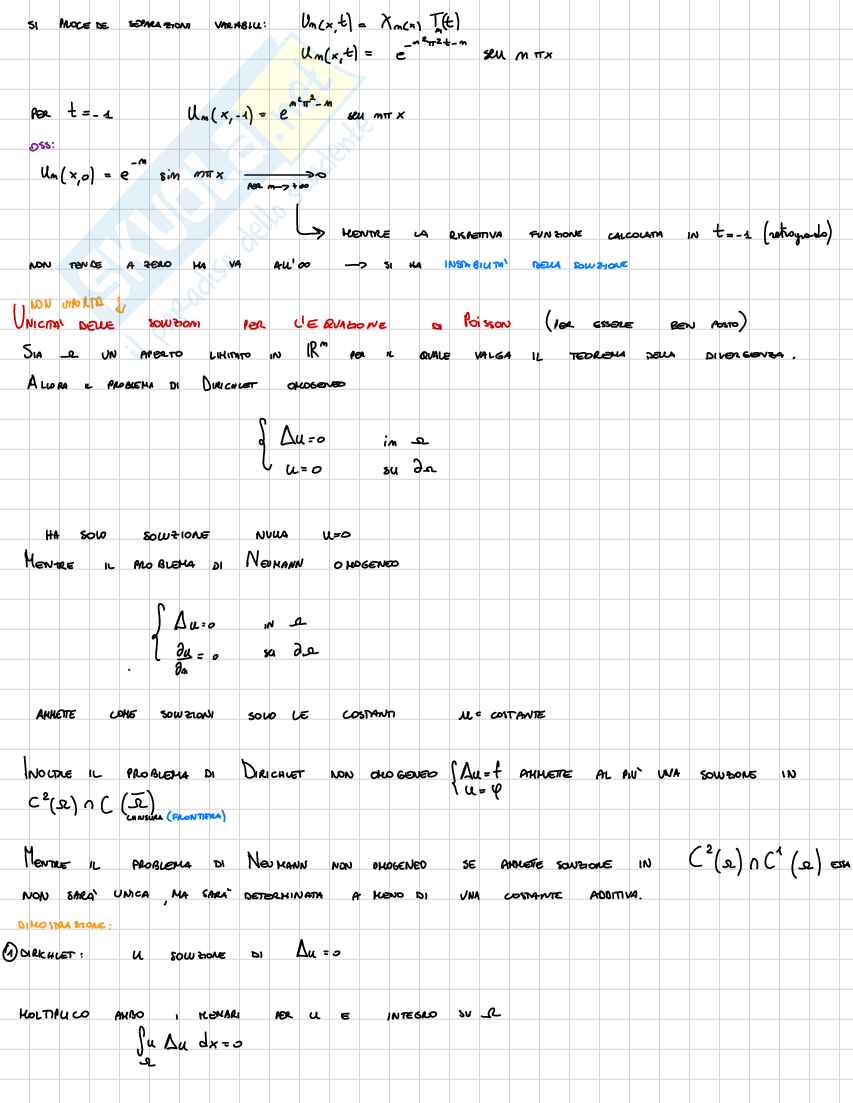 SI PROCEDE SEPARAZIONI VARIABILI: Uₙ(x,t) = Xₙ(x) Tₙ(t)
uₙ(x,t) = e^{-n²π²t-n} sen nπx
PER t=-1 Uₙ(x,-1) = e^{n²π²-n} sen nπx
OSS:
Uₙ(x,0) = e^{-n} sin nπx → 0 PER n→+∞
↳ MENTRE LA RISPETTIVA FUNZIONE CALCOLATA IN t=-1 (retrogrado)
NON TENDE A ZERO MA VA ALL'∞ → SI HA INSTABILITA' DELLA SOLUZIONE
NON IMPORTA ↓
UNICITA' DELLE SOLUZIONI PER L'EQUAZIONE DI POISSON (PER ESSERE BEN POSTO)
SIA Ω UN APERTO LIMITATO IN ℝⁿ PER IL QUALE VALGA IL TEOREMA DELLA DIVERGENZA.
ALLORA IL PROBLEMA DI DIRICHLET OMOGENEO
{ Δu=0 in Ω
u=0 su ∂Ω
HA SOLO SOLUZIONE NULLA u=0
MENTRE IL PROBLEMA DI NEUMANN OMOGENEO
{ Δu=0 IN Ω
∂u/∂n = 0 su ∂Ω
AMMETTE COME SOLUZIONI SOLO LE COSTANTI u= COSTANTE
INOLTRE IL PROBLEMA DI DIRICHLET NON OMOGENEO { Δu=f u=φ AMMETTE AL PIU' UNA SOLUZIONE IN
C²(Ω) ∩ C(Ω̅)
CHIUSURA (FRONTIERA)
MENTRE IL PROBLEMA DI NEUMANN NON OMOGENEO SE AMMETTE SOLUZIONE IN C²(Ω) ∩ C¹(Ω) ESSA
NON SARA' UNICA, MA SARA' DETERMINATA A MENO DI UNA COSTANTE ADDITIVA.
DIMOSTRAZIONE:
① DIRICHLET: u SOLUZIONE DI Δu=0
MOLTIPLICO AMBO I MEMBRI PER u E INTEGRO SU Ω
∫_Ω u Δu dx=0
SKUOLA.net
il paradiso dello studente